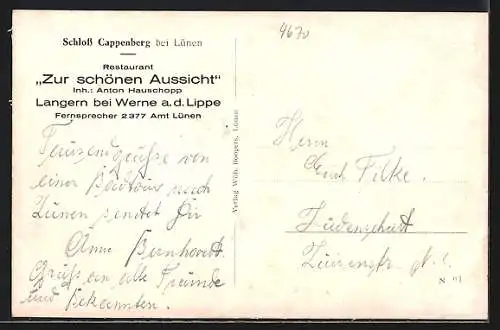 4670
Schloß Cappenberg bei Lünen
Restaurant
„Zur schönen Aussicht“
Inh.: Anton Hauschopp
Langern bei Werne a. d. Lippe
Fernsprecher 2377 Amt Lünen
Tausendgrüße von
einer Radtour nach
Lünen sendet Dir
Anni
Grüße an alle Freunde
und Bekannten.
Verlag Wilh. Lünen
Herrn
N 91